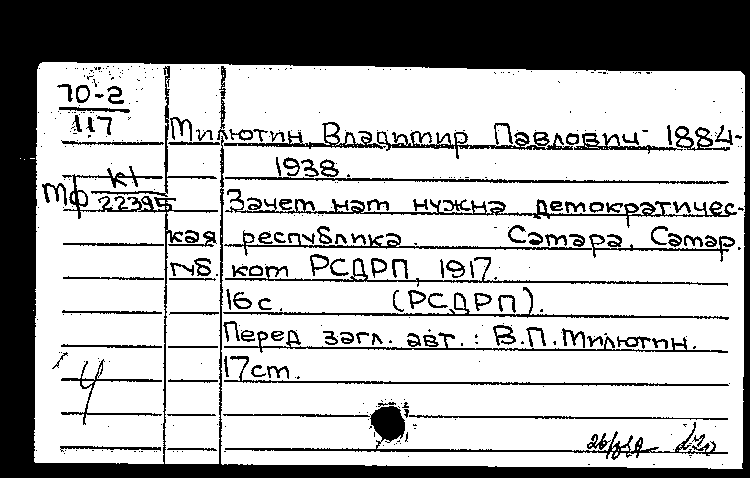 70-2
117
Милютин, Владимир Павлович, 1884-
1938.
Мф К1
22395
Зачем нам нужна демократичес-
кая республика. Самара, Самар.
губ. ком РСДРП, 1917.
16 с. (РСДРП).
Перед загл. авт.: В.П.Милютин.
17 см.